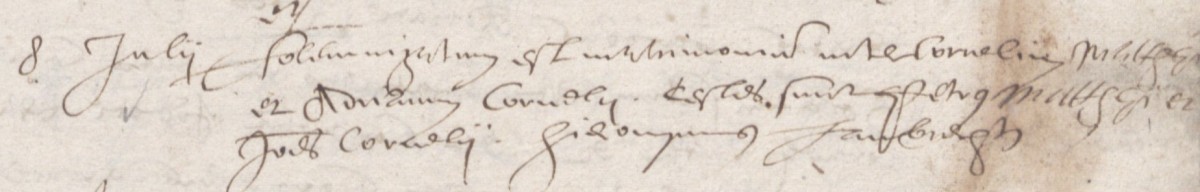 8 Julij solemnizatum est matrimoniũ inter Corneliũ Matthei
et Adrianam Cornelij. Testes sunt Petrus Matthei et
Joẽs Cornelij. Hieronymus Lambrechts